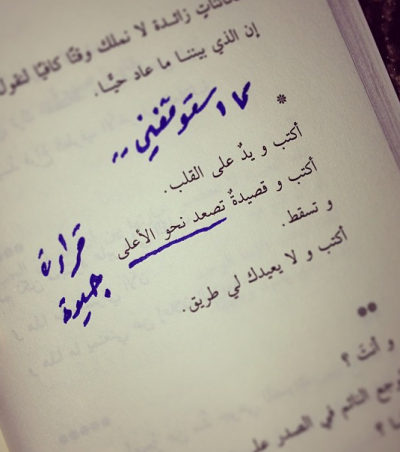 زائدة لا نملك وقتًا كافيًا لنقول
إن الذي بيننا ما عاد حبًّا.
ما استوقفني ..
*
أكتب و يدٌ على القلب.
أكتب و قصيدةٌ تصعد نحو الأعلى
و تسقط.
أكتب و لا يعيدك لي طريق.
قراءة
جميلة
**
و أنتَ ؟
النائم في الصدر على